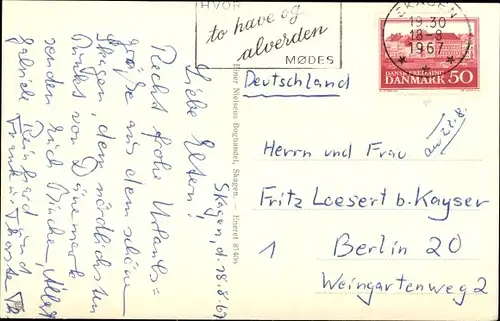 HVOR
to have og
alverden
MØDES
SKAGEN
19.30
18-8
1967
DANSK FREDNING
DANMARK 50
Deutschland
an 22.8.
Herrn und Frau
Fritz Loesert b. Kayser
1 Berlin 20
Weingartenweg 2
Einer Nielsens Boghandel, Skagen. - Eneret 87406
Skagen, d. 18.8.67
Liebe Eltern!
Recht frohe Urlaubs=
grüße aus dem schönen
Skagen, dem nördlichsten
Punkt von Dänemark
senden Euch
Gabriele Reinhard und
Frank u.